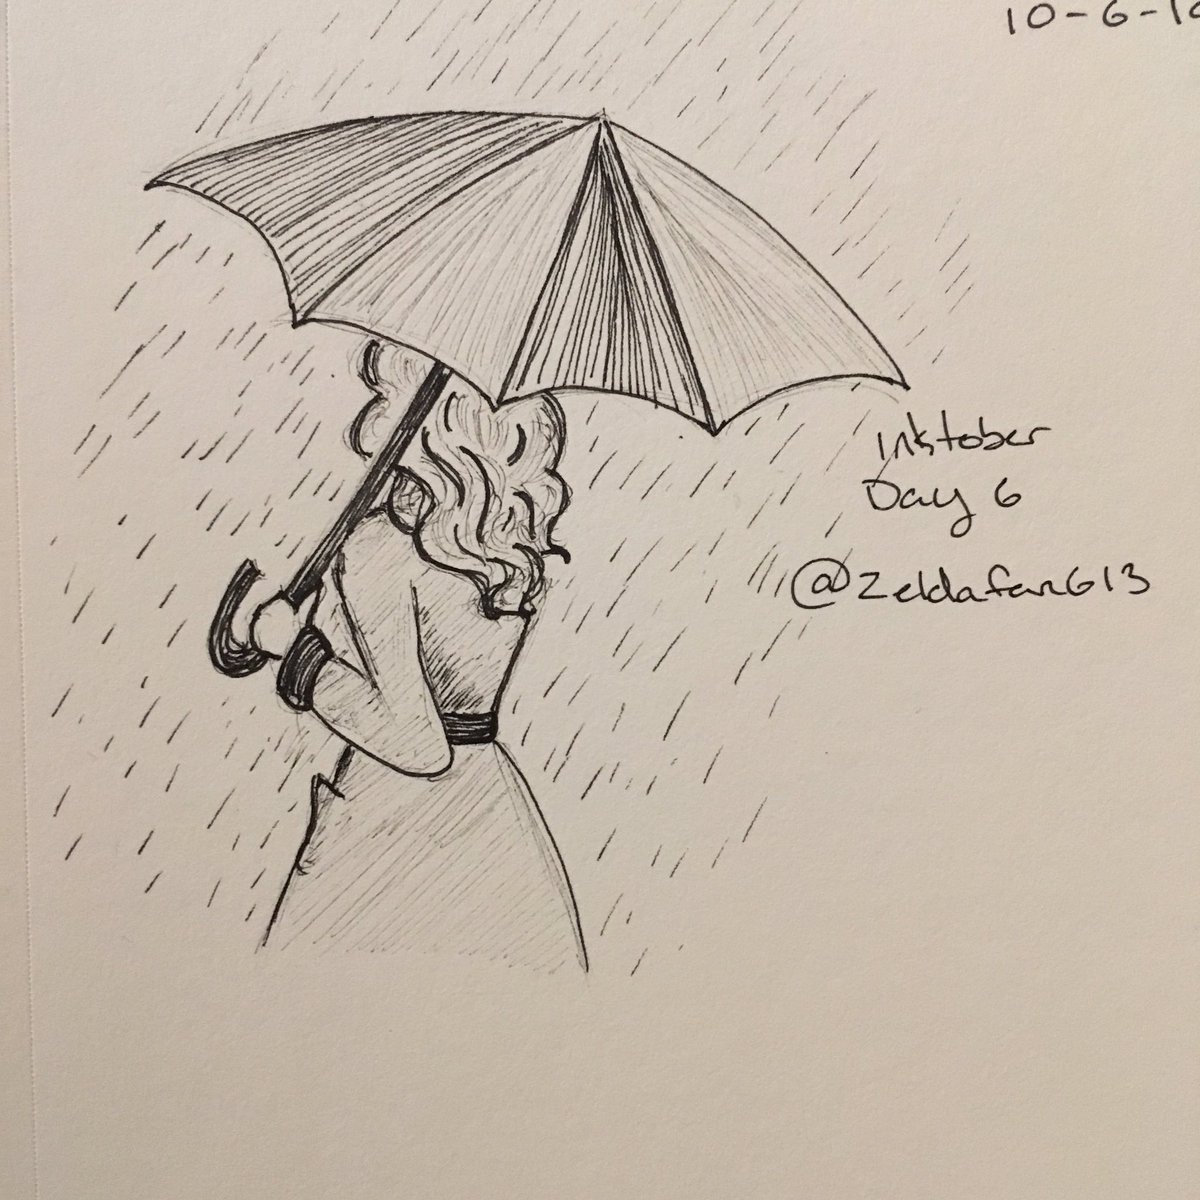 10-6-1
Inktober
Day 6
@zeldafan613